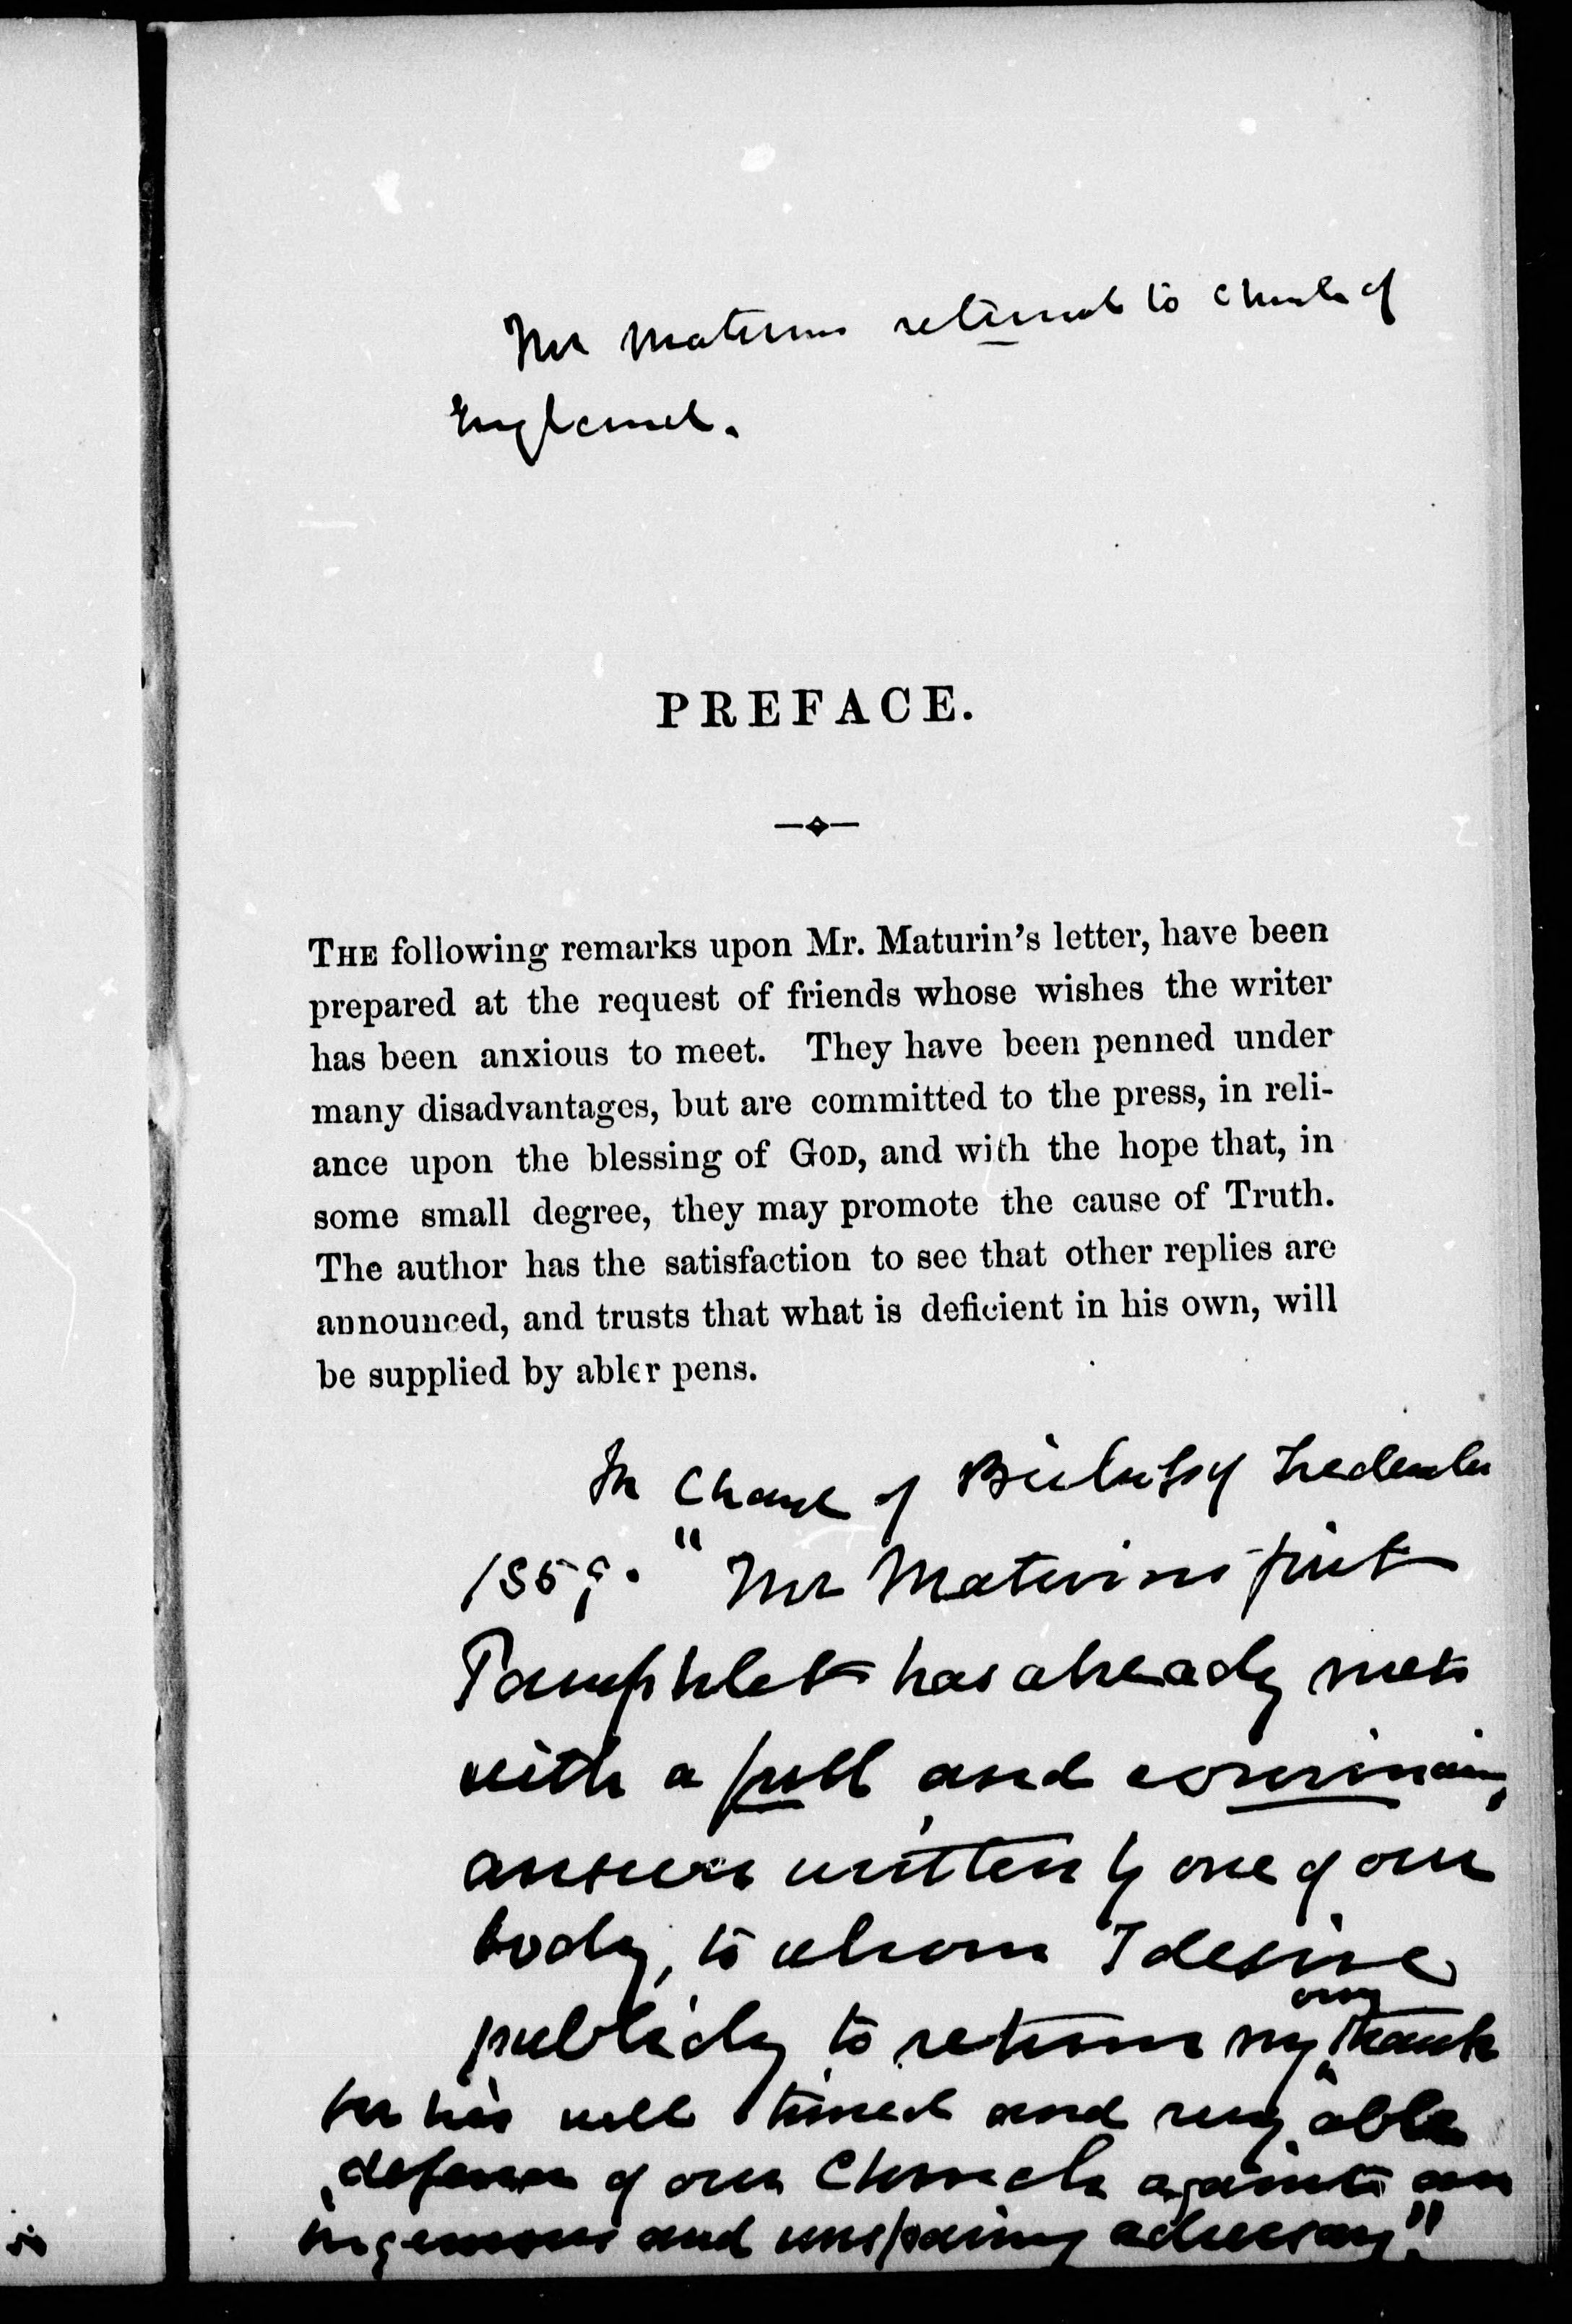 Mr Maturin returned to Church of
England.
PREFACE.
THE following remarks upon Mr. Maturin's letter, have been
prepared at the request of friends whose wishes the writer
has been anxious to meet. They have been penned under
many disadvantages, but are committed to the press, in reli-
ance upon the blessing of GOD, and with the hope that, in
some small degree, they may promote the cause of Truth.
The author has the satisfaction to see that other replies are
announced, and trusts that what is deficient in his own, will
be supplied by abler pens.
In Charge of Bishop of Fredericton
1859. "Mr Maturins first
Pamphlet has already met
with a full and convincing
answer written by one of our
body, to whom I desire
publicly to return my own thanks
for his well timed and very able
defence of our Church against an
ingenious and unsparing adversary."